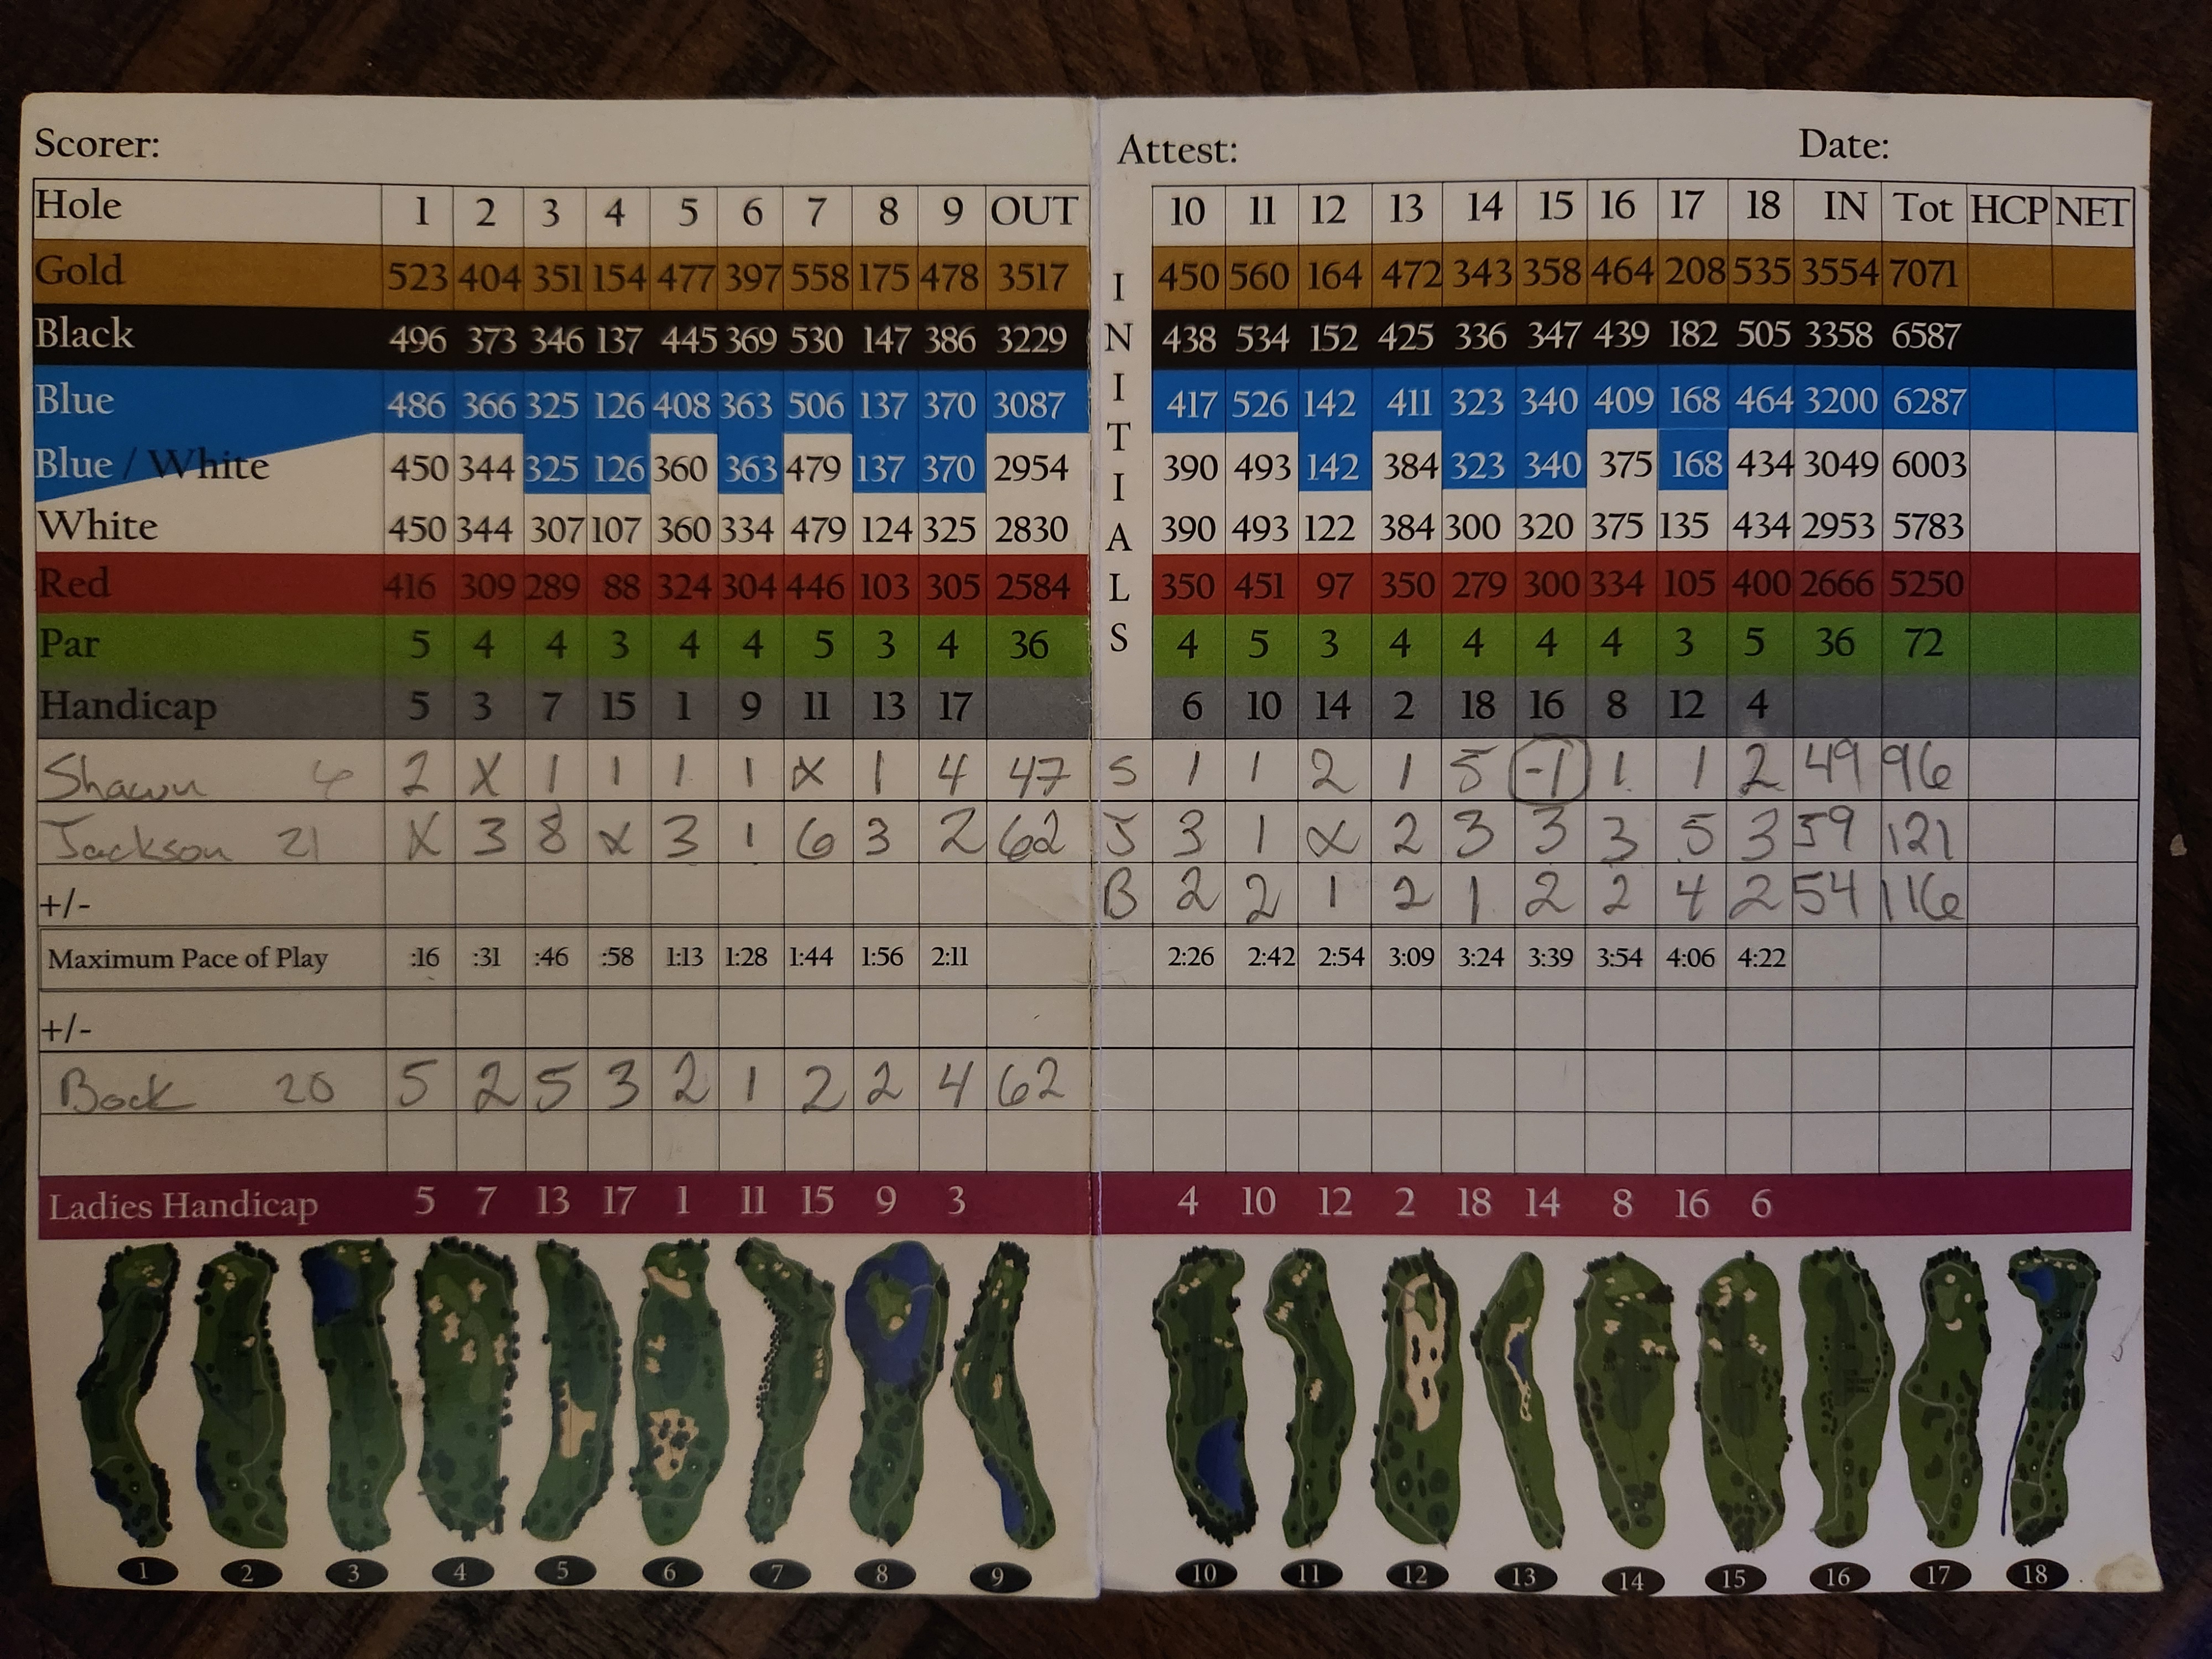 Scorer: Attest: Date:
Hole 1 2 3 4 5 6 7 8 9 OUT 10 11 12 13 14 15 16 17 18 IN Tot HCP NET
Gold 523 404 351 154 477 397 558 175 478 3517 I 450 560 164 472 343 358 464 208 535 3554 7071
Black 496 373 346 137 445 369 530 147 386 3229 N 438 534 152 425 336 347 439 182 505 3358 6587
Blue 486 366 325 126 408 363 506 137 370 3087 I 417 526 142 411 323 340 409 168 464 3200 6287
T
Blue / White 450 344 325 126 360 363 479 137 370 2954 I 390 493 142 384 323 340 375 168 434 3049 6003
White 450 344 307 107 360 334 479 124 325 2830 A 390 493 122 384 300 320 375 135 434 2953 5783
Red 416 309 289 88 324 304 446 103 305 2584 L 350 451 97 350 279 300 334 105 400 2666 5250
Par 5 4 4 3 4 4 5 3 4 36 S 4 5 3 4 4 4 4 3 5 36 72
Handicap 5 3 7 15 1 9 11 13 17 6 10 14 2 18 16 8 12 4
Shawn 2 X 1 1 1 1 X 1 4 47 S 1 1 2 1 5 -1 1 1 2 49 96
Jackson 21 X 3 8 X 3 1 6 3 2 62 J 3 1 X 2 3 3 3 5 3 59 121
+/- B 2 2 1 2 1 2 2 4 2 54 116
Maximum Pace of Play :16 :31 :46 :58 1:13 1:28 1:44 1:56 2:11 2:26 2:42 2:54 3:09 3:24 3:39 3:54 4:06 4:22
+/-
Bock 20 5 2 5 3 2 1 2 2 4 62
Ladies Handicap 5 7 13 17 1 11 15 9 3 4 10 12 2 18 14 8 16 6
1 2 3 4 5 6 7 8 9 10 11 12 13 14 15 16 17 18